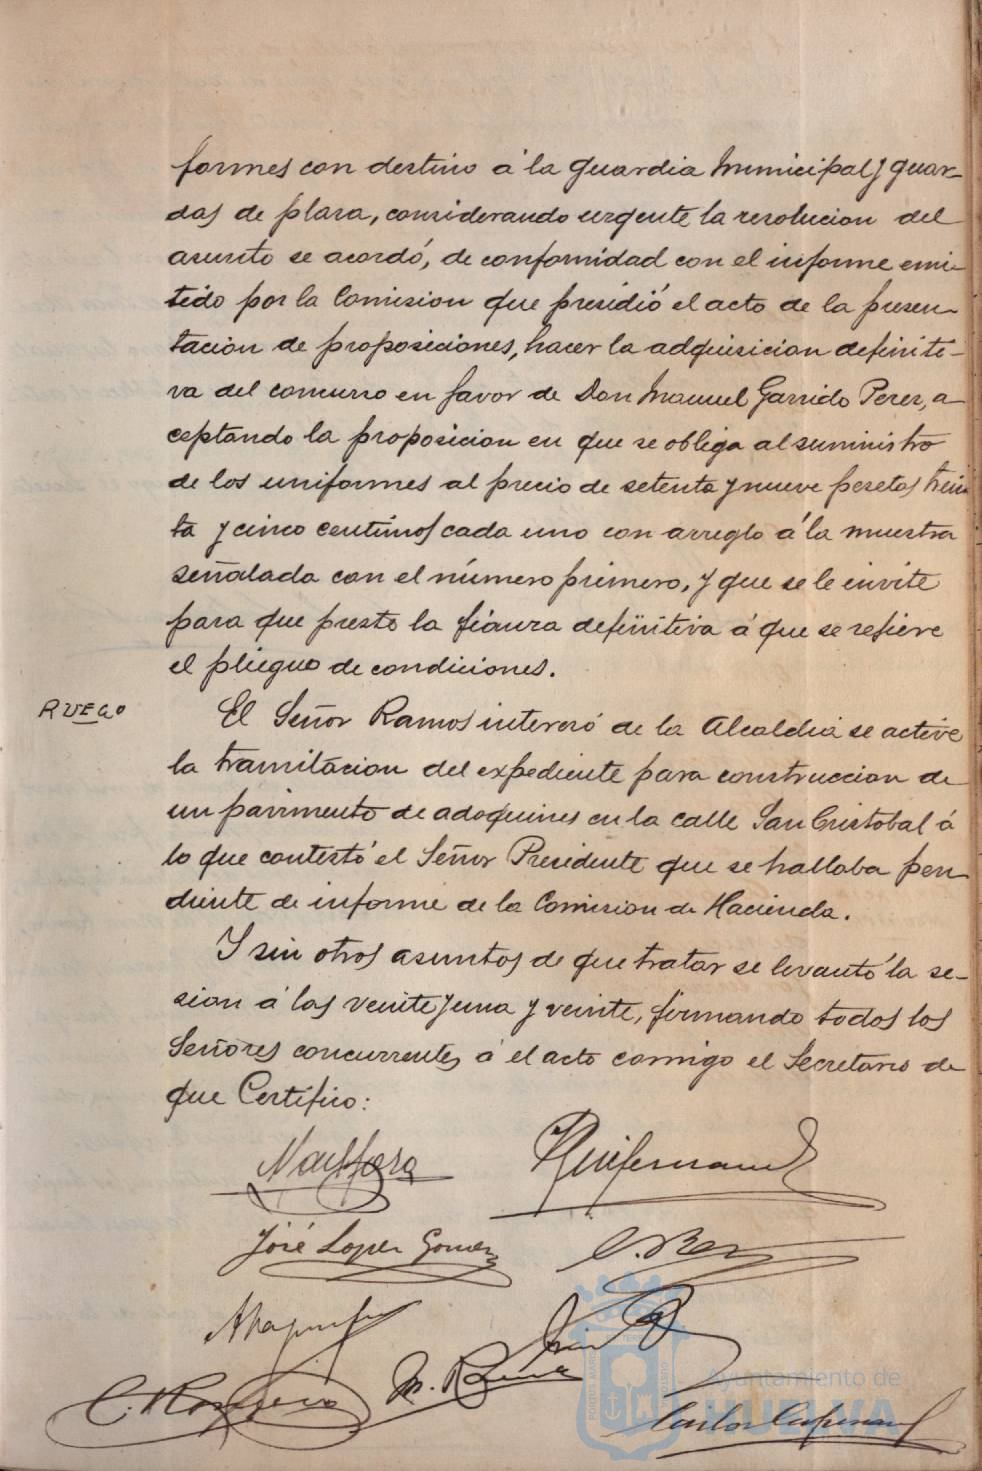 formes con destino á la guardia Municipal y guar-
das de plasa, considerando urgente la resolucion del
asunto se acordó, de conformidad con el informe emi-
tido por la Comision que presidió el acto de la presen-
tacion de proposiciones, hacer la adquisicion definiti-
va del concurso en favor de Don Manuel Garrido Perez, a
ceptando la proposicion en que se obliga al suministro
de los uniformes al precio de setenta y nueve pesetas trein
ta y cinco centimos cada uno con arreglo á la muestra
señalada con el número primero, y que se le invite
para que preste la fianza definitiva á que se refiere
el pliego de condiciones.
RUEGO
El Señor Ramos interesó de la Alcaldia se active
la tramitacion del expediente para construccion de
un pavimento de adoquines en la calle San Cristobal á
lo que contestó el Señor Presidente que se hallaba pen
diente de informe de la Comision de Hacienda.
Y sin otros asuntos de que tratar se levantó la se-
sion á las veinte y una y veinte, firmando todos los
Señores concurrentes á el acto conmigo el Secretario de
que Certifico:
José Lopez Gomez
Carlos
Ayuntamiento de
HUELVA